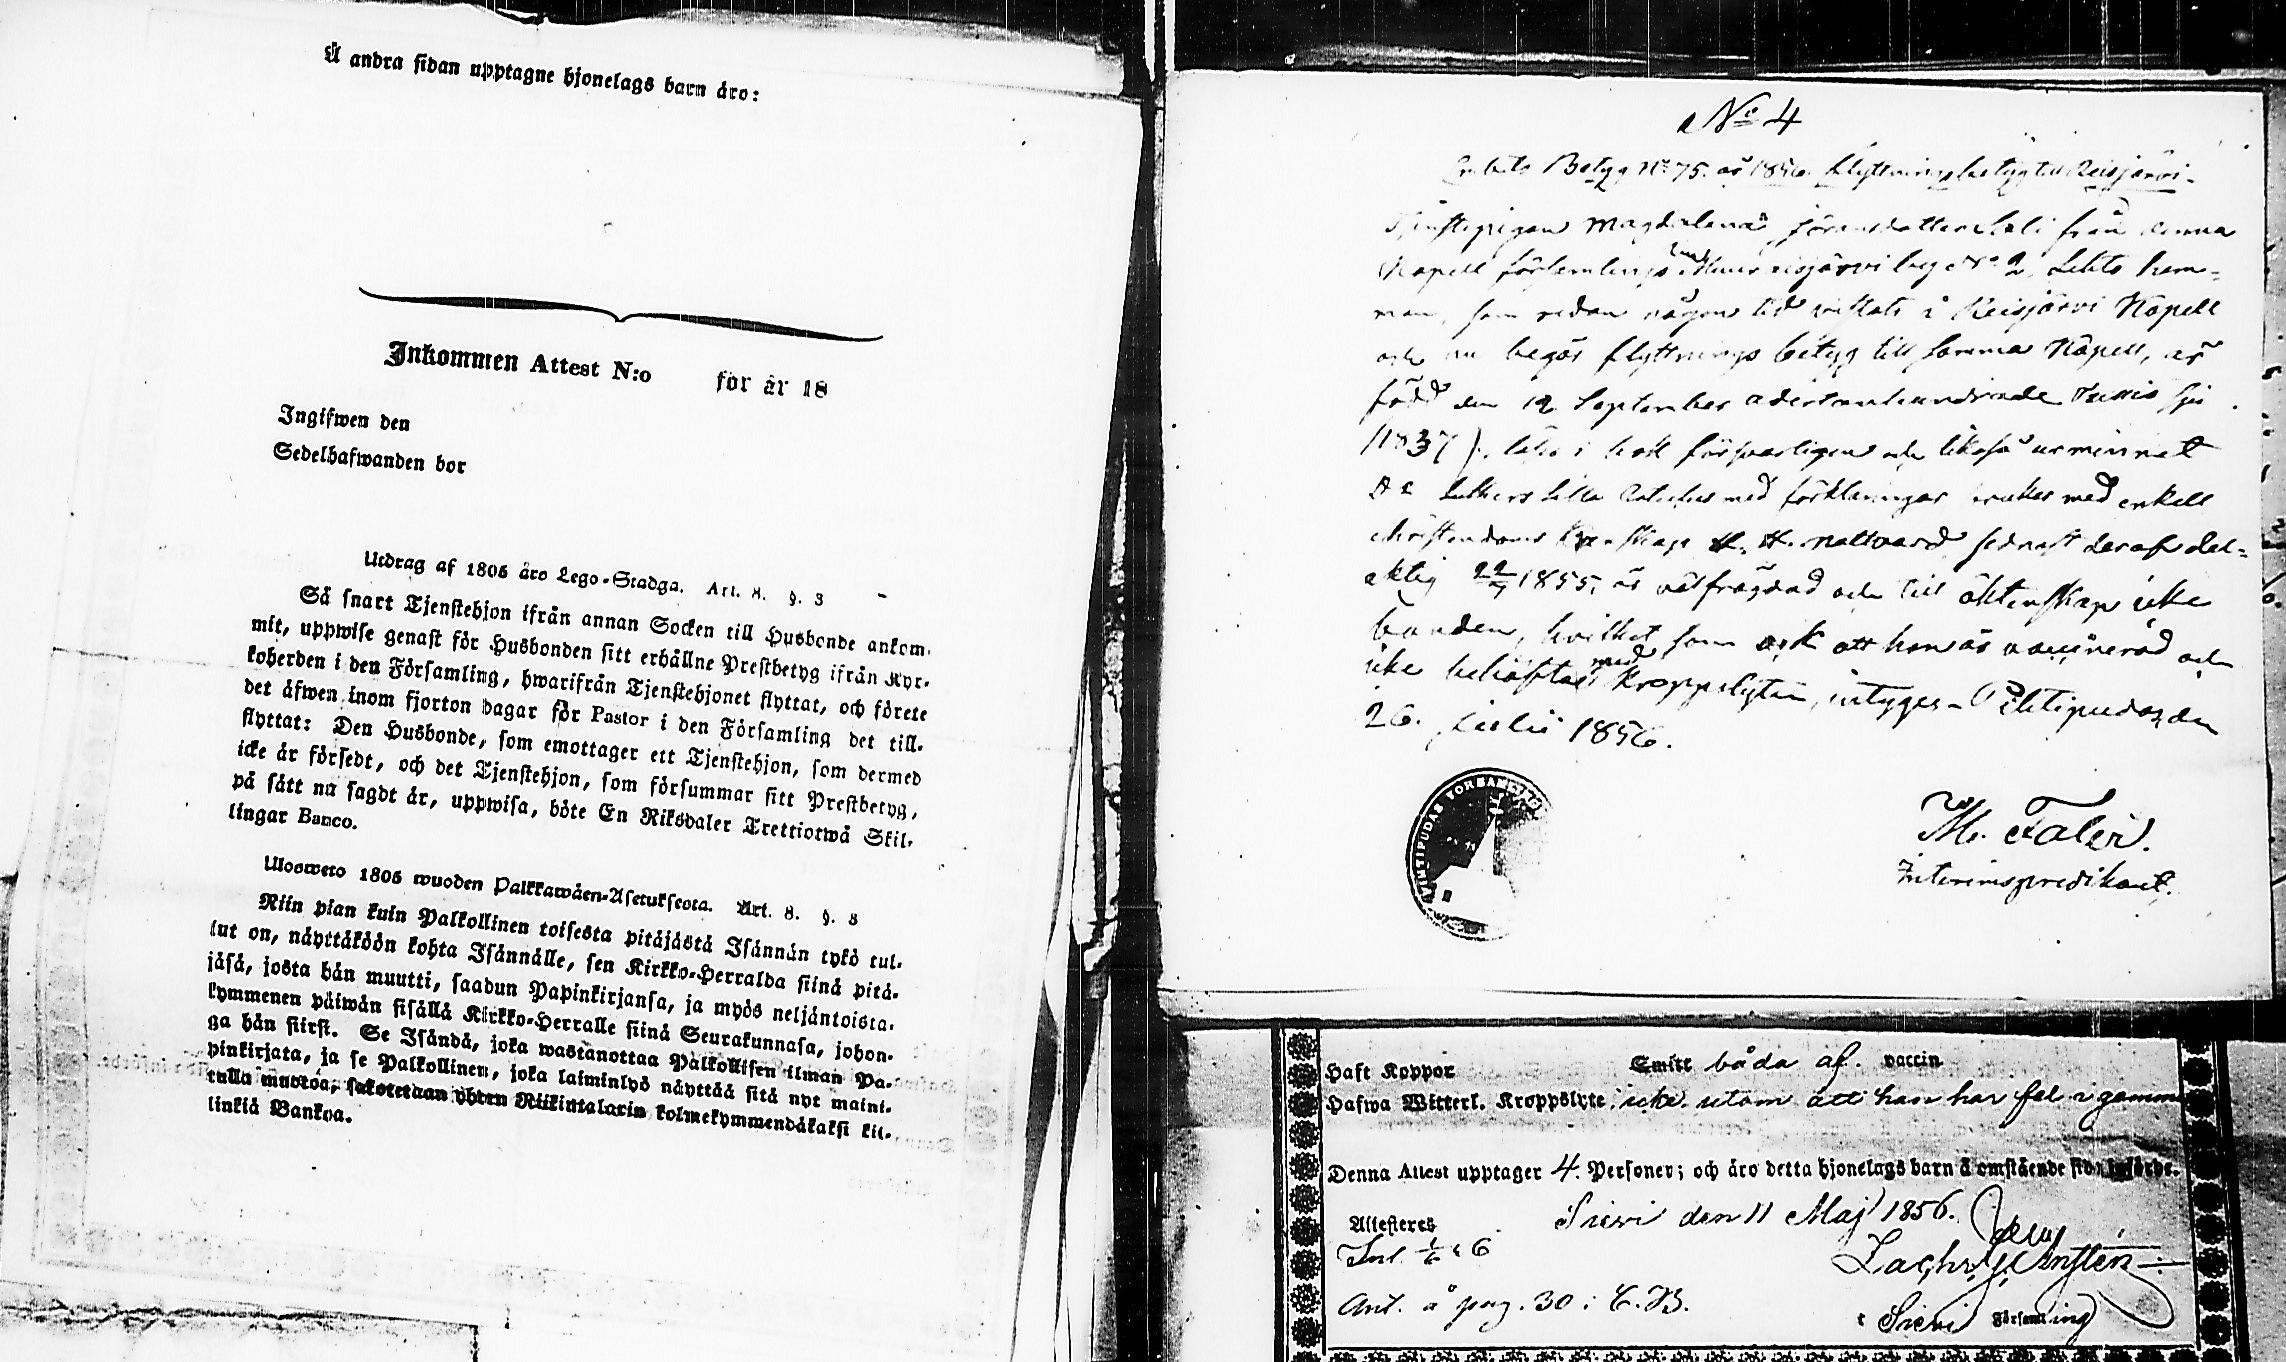 Å andra sidan upptagne hjonelags barn äro:
Inkommen Attest N:o för år 18
Ingifwen den
Sedelhafwanden bor
Utdrag af 1805 års Lego-Stadga. Art. 8. §. 3
Så snart Tjenstehjon ifrån annan Socken till Husbonde ankom-
mit, uppwise genast för Husbonden sitt erhållne Prestbetyg ifrån Kyr-
koherden i den Församling, hwarifrån Tjenstehjonet flyttat, och förete
det äfwen inom fjorton dagar för Pastor i den Församling det till-
flyttat: Den Husbonde, som emottager ett Tjenstehjon, som dermed
icke är försedt, och det Tjenstehjon, som försummar sitt Prestbetyg,
på sätt nu sagdt är, uppwisa, böte En Riksdaler Trettiotwå Skil-
lingar Banco.
Ulosweto 1805 wuoden Palkkawäen-Asetuksesta. Art. 8. §. 3
Niin pian kuin Palkollinen toisesta pitäjästä Isännän tykö tul-
lut on, näyttäköön kohta Isännälle, sen Kirkko-Herralda siinä pitä-
jäsä, josta hän muutti, saadun Papinkirjansa, ja myös neljäntoista-
kymmenen päiwän sisällä Kirkko-Herralle siinä Seurakunnasa, johon-
ga hän siirsi. Se Isändä, joka wastanottaa Palkollisen ilman Pa-
pinkirjata, ja se Palkollinen, joka laiminlyö näyttää sitä nyt maini-
tulla muotoa, sakotetaan yhten Riikintalarin kolmekymmendäkaksi kil-
linkiä Bankoa.
No 4
Betyg No 75. år 1856. flyttningsbetyg till Reisjärvi.
Tjenstepigan Magdalena Jöransdotter från denna
Kapell församlings No 2 hem-
man, som redan någon tid vistats i Reisjärvi Kapell
och nu begär flyttnings betyg till samma Kapell, är
född den 12 September adertonhundrade sju
(1837), i bok försvarligen och likaså ur minnet
Luthers lilla med förklaringar med enkell
christendoms kunskap H. H. nattvard sednast deraf del-
aktig 1855, är välfrägdad och till äktenskap icke
bunden, hvilket som ock att hon är vaccinerad och
icke behäftad med kroppslyten, intygas. Pihtipudas den
26. Julii 1856.
PIHTIPUDAS FÖRSAMLINGS
M. Faler.
Interimspredikant.
Haft Koppor Smitt båda af. vaccin
Hafwa Witterl. Kroppslyte icke. utom att han har fel i
Denna Attest upptager 4. Personer; och äro detta hjonelags barn å omstående sida införde.
Attesteres Sievi den 11 Maj 1856.
Inl. 1/6 56
Ant. å pag. 30 i C.B.
i Sievi Församling